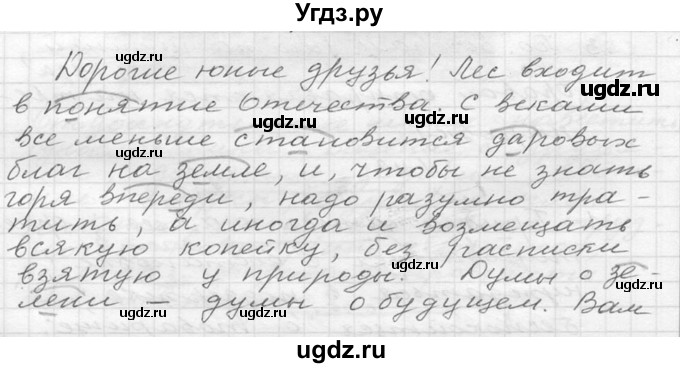 Угдз.ру
Дорогие юные друзья! Лес входит
в понятие Отечества. С веками
все меньше становится даровых
благ на земле, и, чтобы не знать
горя впереди, надо разумно тра-
тить, а иногда и возмещать
всякую копейку, без расписки
взятую у природы. Думы о зе-
лени – думы о будущем. Вам
ugdz.ru
ugdz.ru
ugdz.ru
ugdz.ru
ugdz.ru
ugdz.ru
ugdz.ru
ugdz.ru
ugdz.ru